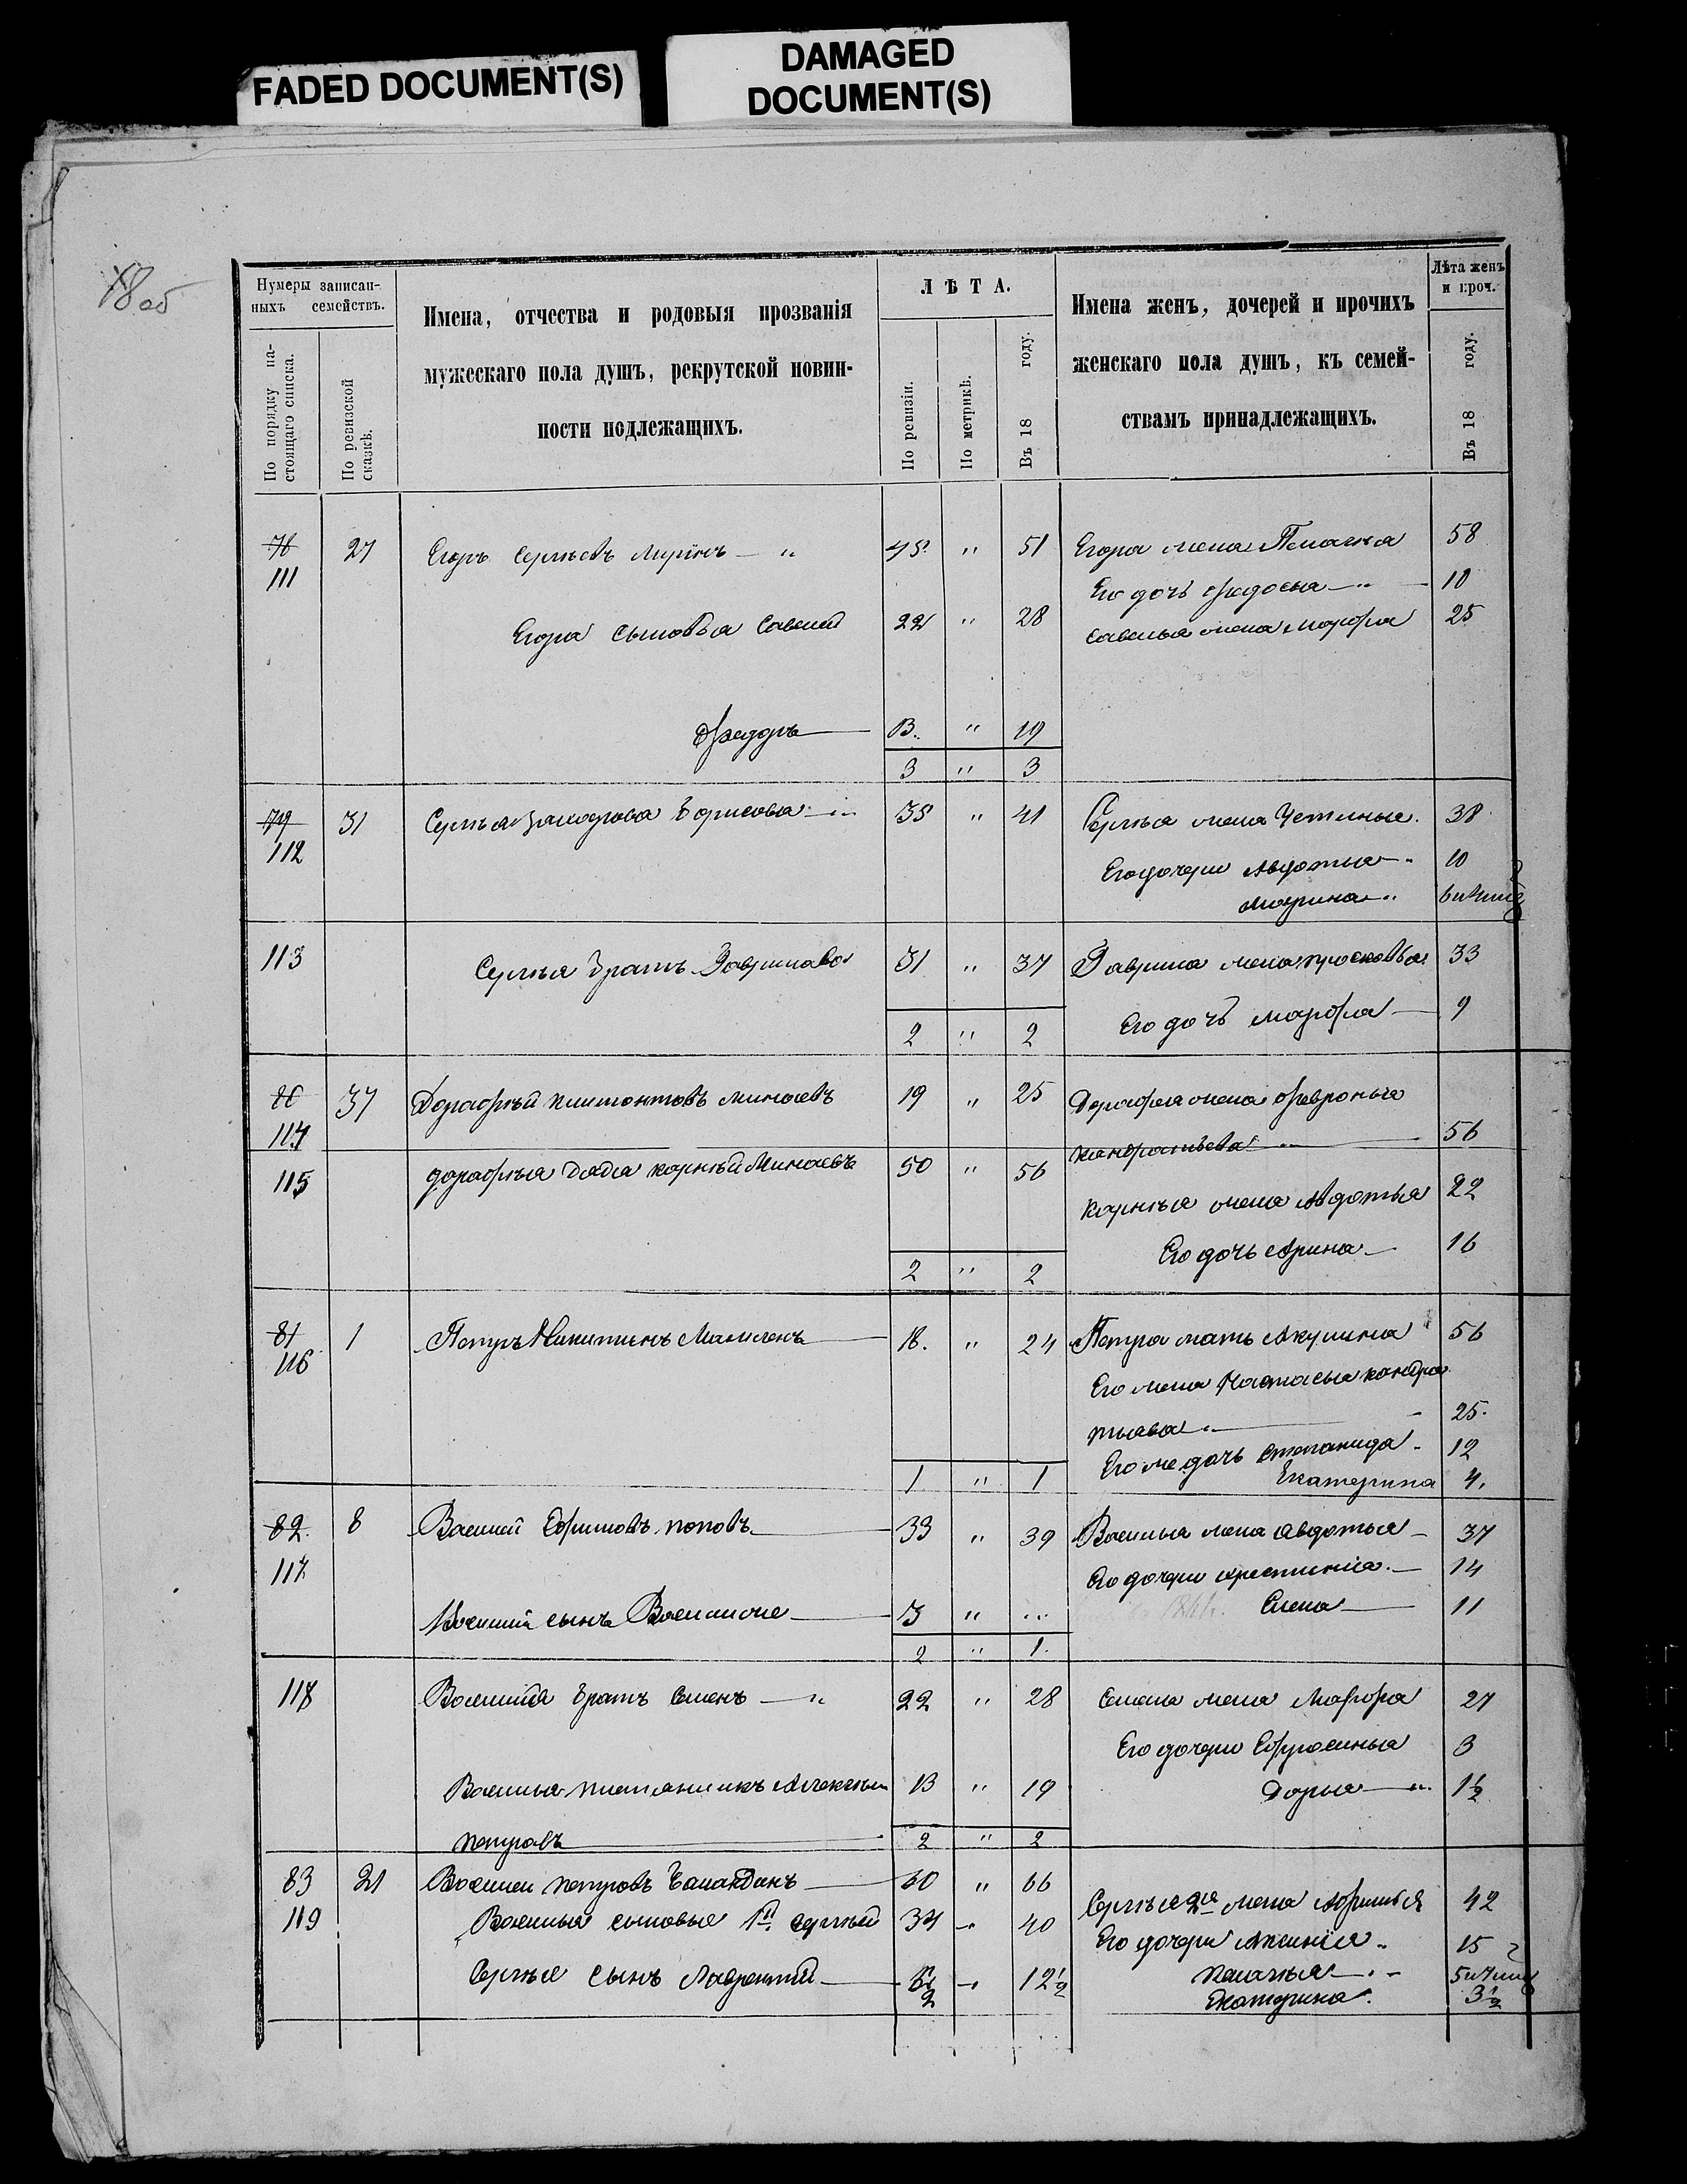 FADED DOCUMENT(S)
DAMAGED
DOCUMENT(S)
18 об
Нумеры записан-
ныхъ семействъ.
По порядку на-
стоящаго списка.
По ревизской
сказкѣ.
Имена, отчества и родовыя прозванія
мужескаго пола душъ, рекрутской повин-
ности подлежащихъ.
ЛѢТА.
По ревизіи.
По метрикѣ.
Въ 18 году.
Имена женъ, дочерей и прочихъ
женскаго пола душъ, къ семей-
ствамъ принадлежащихъ.
Лѣта женъ
и проч.
Въ 18 году.
78 27 Егоръ Сергѣевъ — " 45 " 51 Егора жена 58
111 Его дочь Федосья — " — 10
Егора сыновья Савелий 22 " 28 Савелья жена Марфа 25
Федоръ — 13 " 19
3 " 3
79 31 Сергѣя Борисова 35 " 41 Сергѣя жена 38
112 Его дочери Авдотья 10
Марина
113 Сергѣя братъ Гаврила 31 " 37 Гаврила жена Прасковья 33
2 " 2 Его дочь Марфа — 9
80 37 Дорофѣй Минаевъ 19 " 25 Дорофея жена Февронья
114 Кандратьева — 56
115 Дорофѣя дядя Карнѣй Минаевъ 50 " 56
Карнѣя жена Авдотья 22
Его дочь Арина — 16
2 " 2
81 1 Петръ Никитинъ — 18. " 24 Петра мать Акулина 56
116 Его жена Настасья Кандра
тьева — 25.
Его же дочь Степанида 12
1 " 1 Екатерина 4.
82 8 Василий Ефимовъ Поповъ — 33 " 39 Василья жена Авдотья — 37
117 Его дочери — 14
Василия сынъ — 3 " ... Елена — 11
2 " 1.
118 Василия братъ Семенъ — " 22 " 28 Семена жена Марфа 27
Его дочери Ефросинья 3
Василья племянникъ Алексѣй 13 " 19 Дарья — 1½
Петровъ — 2 " 2
83 21 Василей Петровъ — 60 " 66
119 Василья сыновья 1й Сергѣй 34 — 40 Сергѣя 2я жена 42
Его дочери Аксинія 15
Сергѣя сынъ Лаврентий — 6½ — 12½ Пелагѣя —
Екатерина. 3½